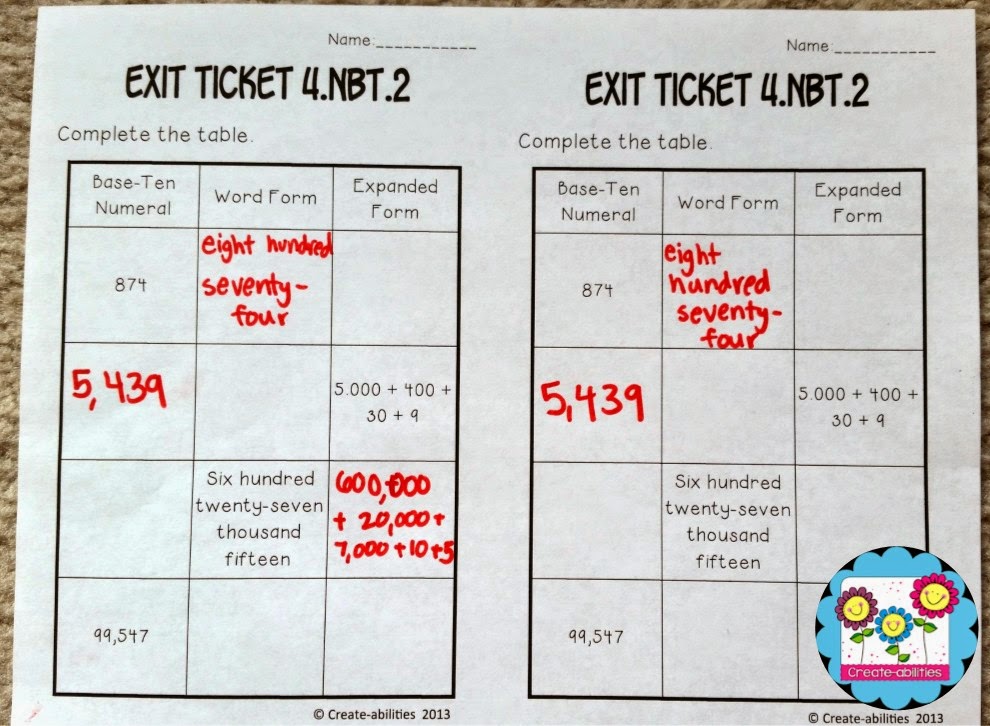 Name:___________
EXIT TICKET 4.NBT.2
Complete the table.
Base-Ten
Numeral
Word Form
Expanded
Form
874
eight hundred
seventy-
four
5,439
5.000 + 400 +
30 + 9
Six hundred
twenty-seven
thousand
fifteen
600,000
+ 20,000+
7,000+10+5
99,547
© Create-abilities 2013
Name:___________
EXIT TICKET 4.NBT.2
Complete the table.
Base-Ten
Numeral
Word Form
Expanded
Form
874
eight
hundred
seventy-
four
5,439
5.000 + 400 +
30 + 9
Six hundred
twenty-seven
thousand
fifteen
99,547
Create-abilities
© Create-abilities 2013